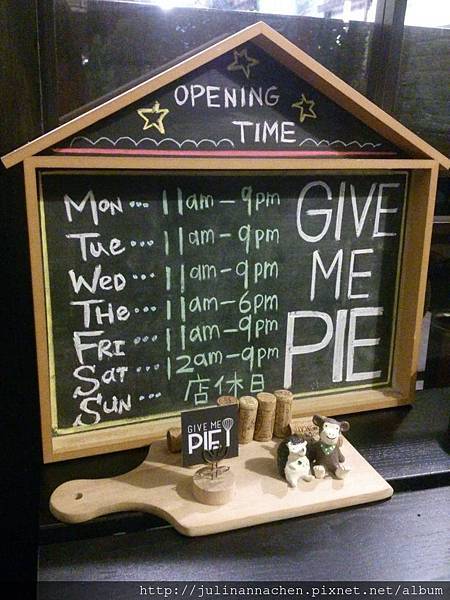 OPENING
TIME
MON... 11am-9pm
Tue... 11am-9pm
WED... 11am-9pm
THe... 11am-6pm
FRI... 11am-9pm
SAT... 12am-9pm
SUN... 店休日
GIVE
ME
PIE
GIVE ME
PIE!
http://julinannachen.pixnet.net/album